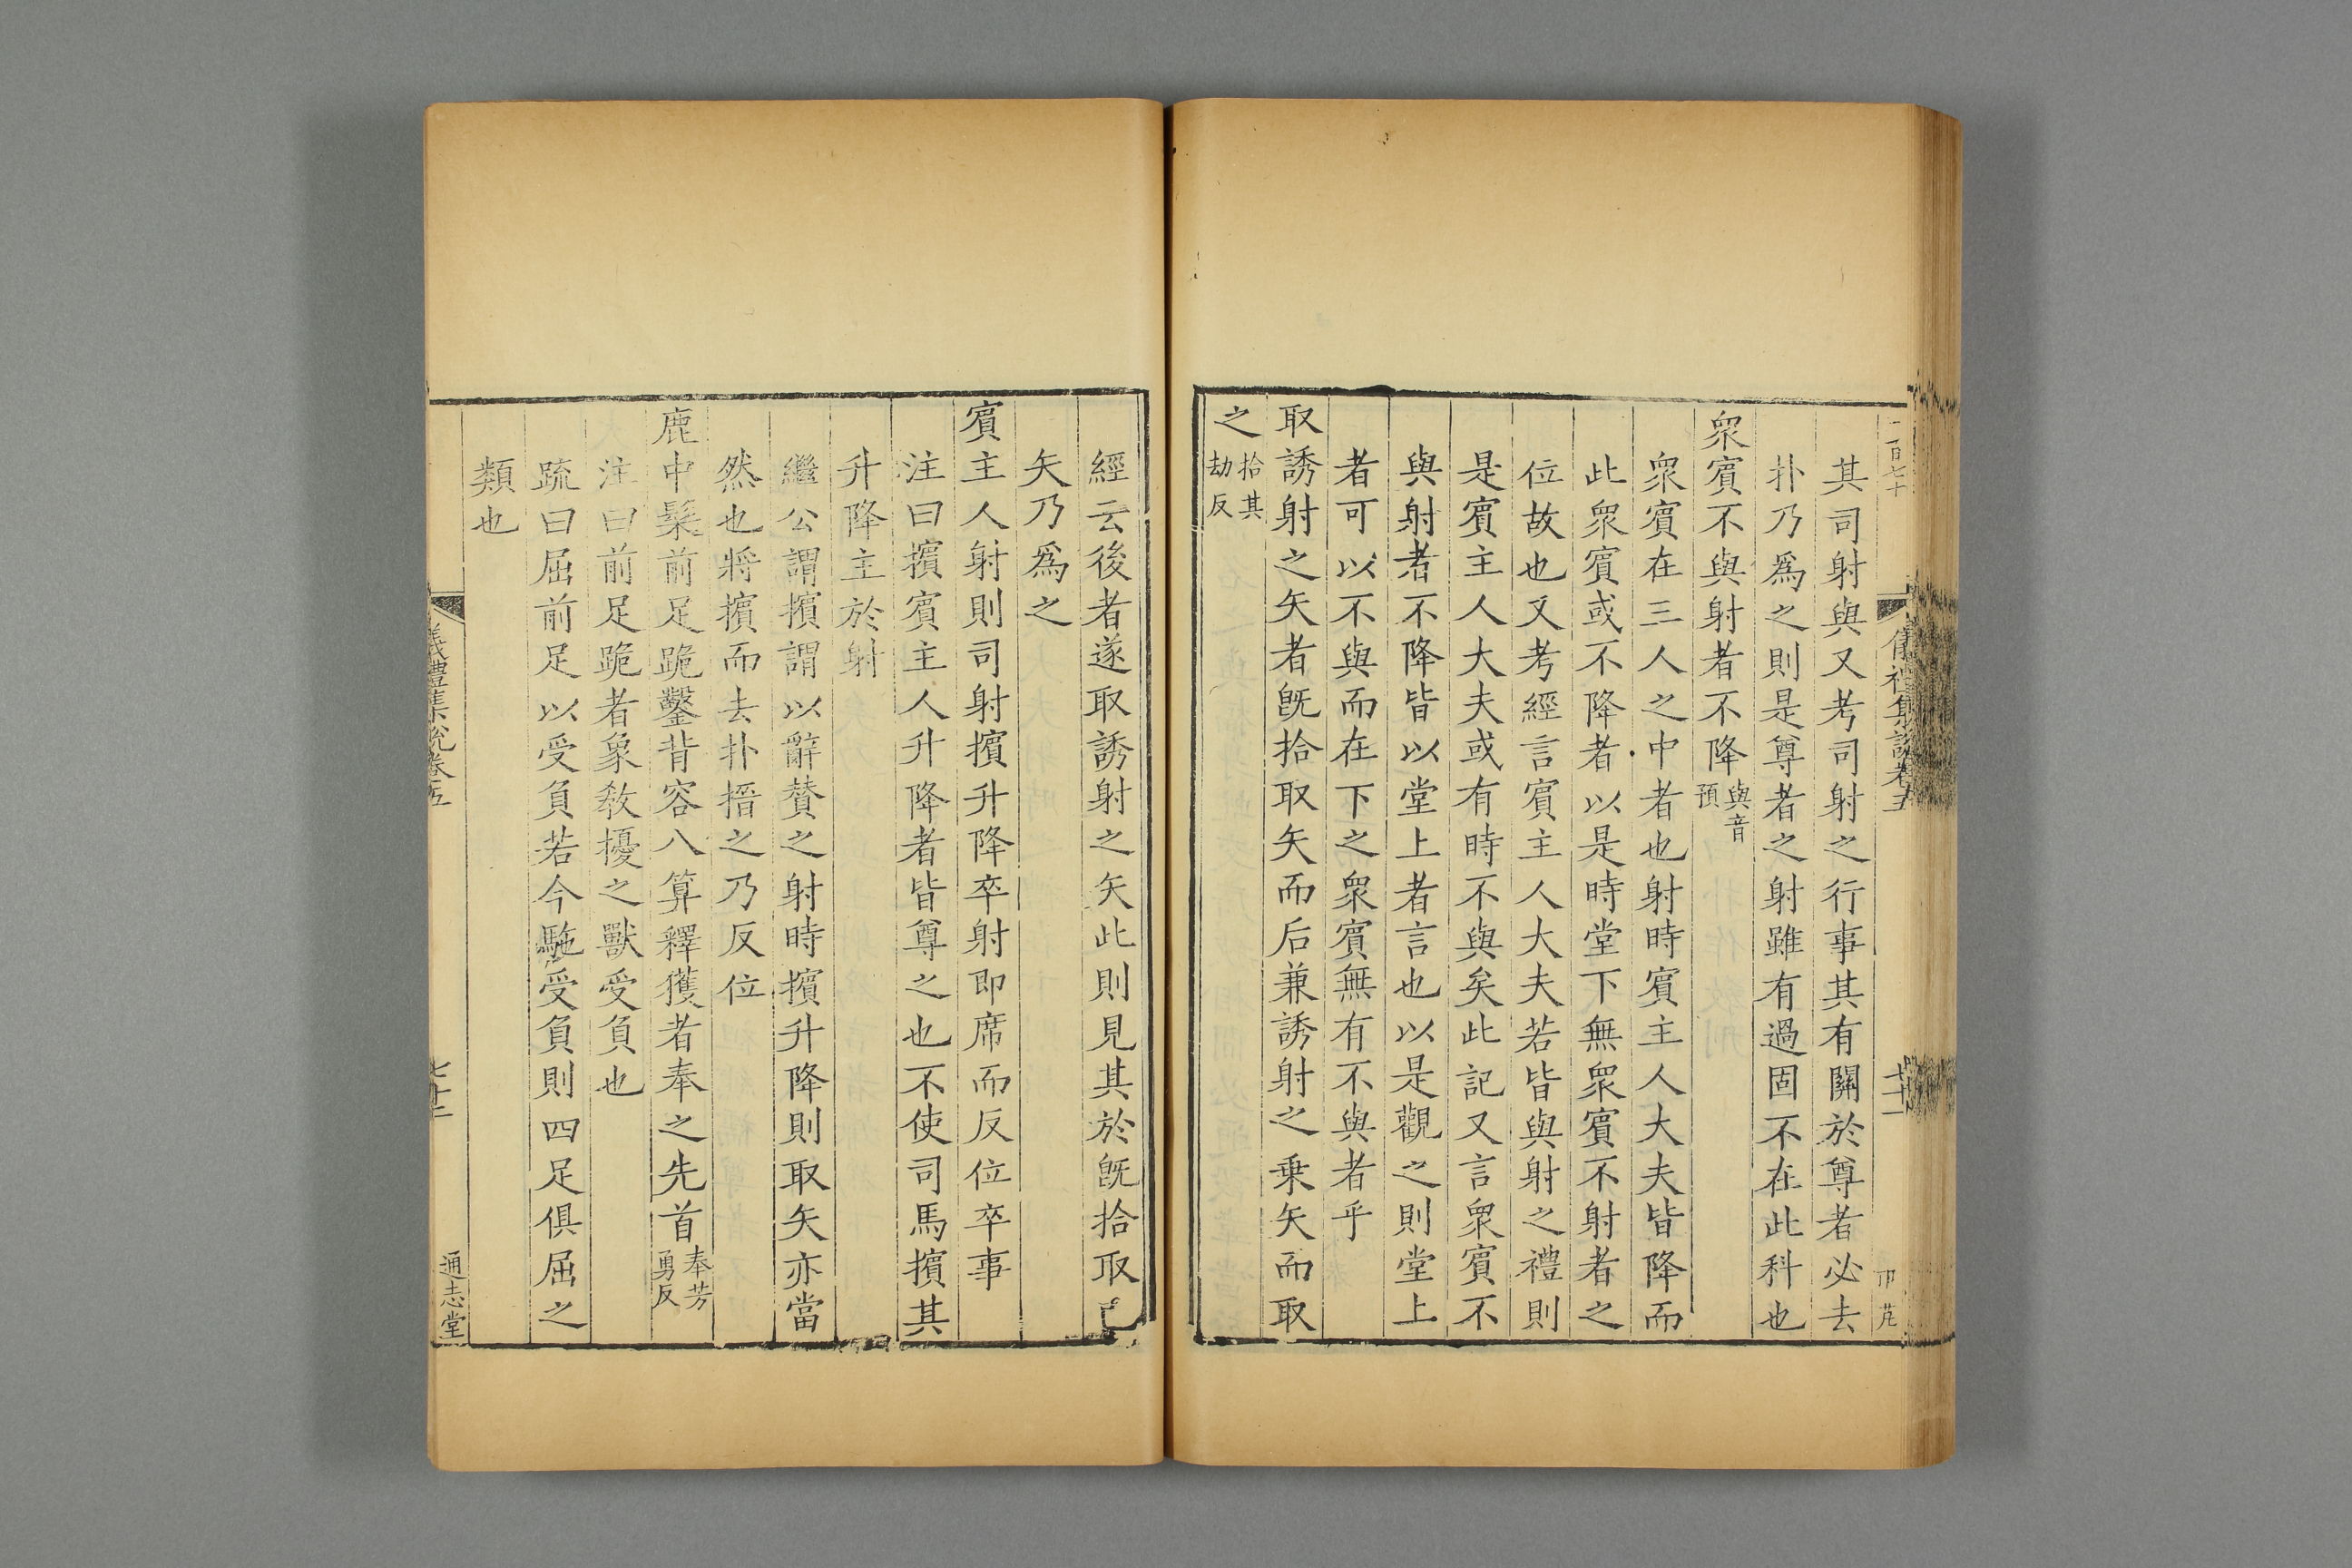 二百七十
儀禮集說卷五
七十一
其司射與又考司射之行事其有關於尊者必去
扑乃爲之則是尊者之射雖有過固不在此科也
衆賓不與射者不降與音預
衆賓在三人之中者也射時賓主人大夫皆降而
此衆賓或不降者以是時堂下無衆賓不射者之
位故也又考經言賓主人大夫若皆與射之禮則
是賓主人大夫或有時不與矣此記又言衆賓不
與射者不降皆以堂上者言也以是觀之則堂上
者可以不與而在下之衆賓無有不與者乎
取誘射之矢者既拾取矢而后兼誘射之乗矢而取
之拾其劫反
經云後者遂取誘射之矢此則見其於既拾取己
矢乃爲之
賓主人射則司射擯升降卒射即席而反位卒事
注曰擯賓主人升降者皆尊之也不使司馬擯其
升降主於射
繼公謂擯謂以辭贊之射時擯升降則取矢亦當
然也將擯而去扑搢之乃反位
鹿中髤前足跪鑿背容八算釋獲者奉之先首奉芳勇反
注曰前足跪者象教擾之獸受負也
疏曰屈前足以受負若今駞受負則四足俱屈之
類也
儀禮集說卷五
七十二
通志堂